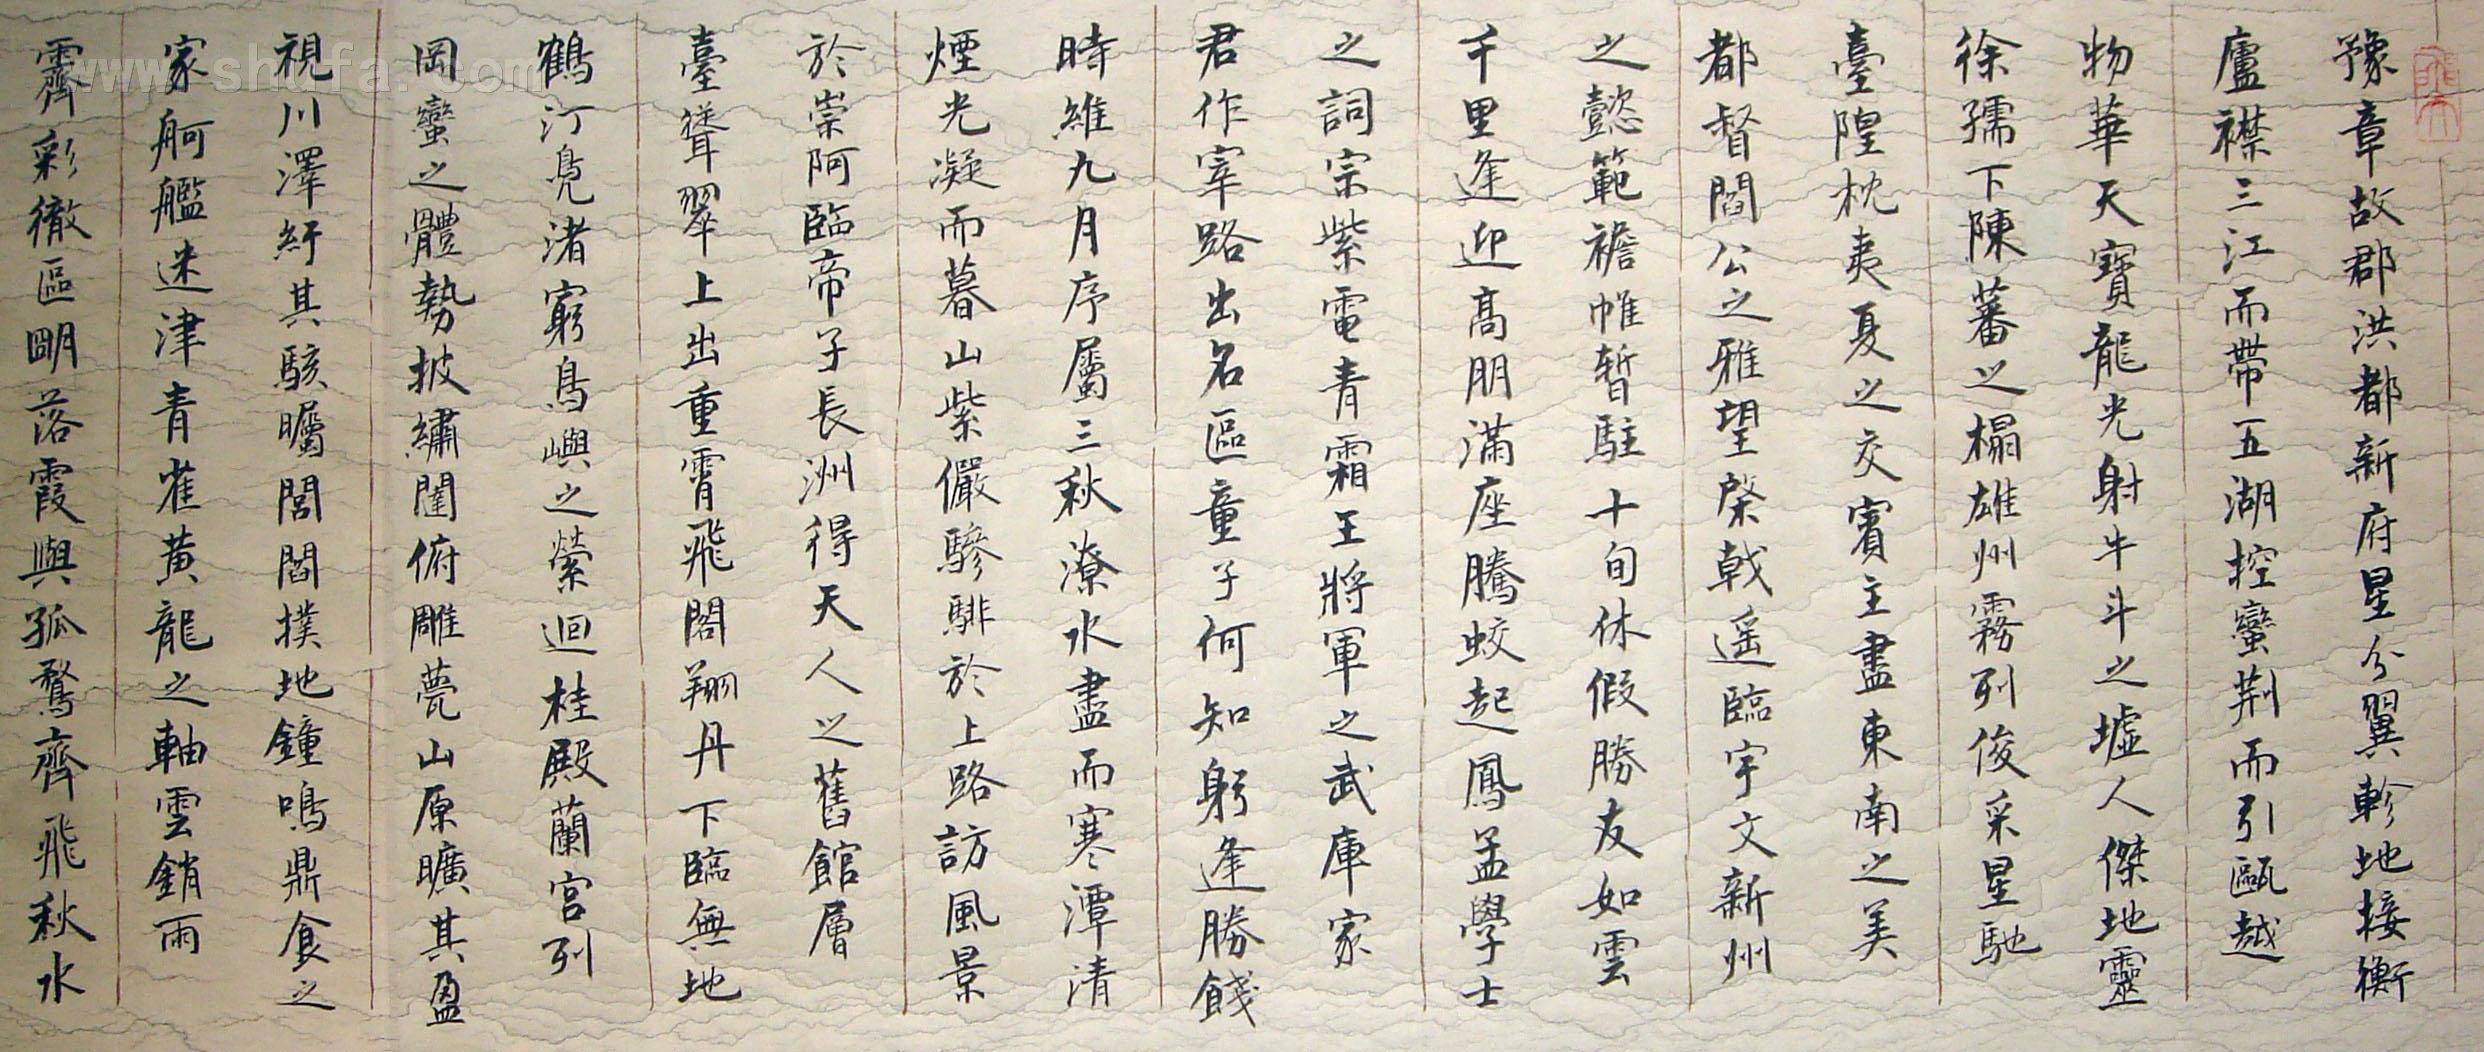 豫章故郡洪都新府星分翼軫地接衡
廬襟三江而帶五湖控蠻荆而引甌越
物華天寶龍光射牛斗之墟人傑地靈
徐孺下陳蕃之榻雄州霧列俊采星馳
臺隍枕夷夏之交賓主盡東南之美
都督閻公之雅望棨戟遥臨宇文新州
之懿範襜帷暫駐十旬休假勝友如雲
千里逢迎高朋滿座騰蛟起鳳孟學士
之詞宗紫電青霜王將軍之武庫家
君作宰路出名區童子何知躬逢勝餞
時維九月序屬三秋潦水盡而寒潭清
煙光凝而暮山紫儼驂騑於上路訪風景
於崇阿臨帝子長洲得天人之舊館層
臺聳翠上出重霄飛閣翔丹下臨無地
鶴汀鳧渚窮島嶼之縈迴桂殿蘭宫列
岡巒之體勢披繡闥俯雕甍山原曠其盈
視川澤紆其駭矚閭閻撲地鐘鳴鼎食之
家舸艦迷津青雀黄龍之軸雲銷雨
霽彩徹區明落霞與孤鶩齊飛秋水
www.shufa.com